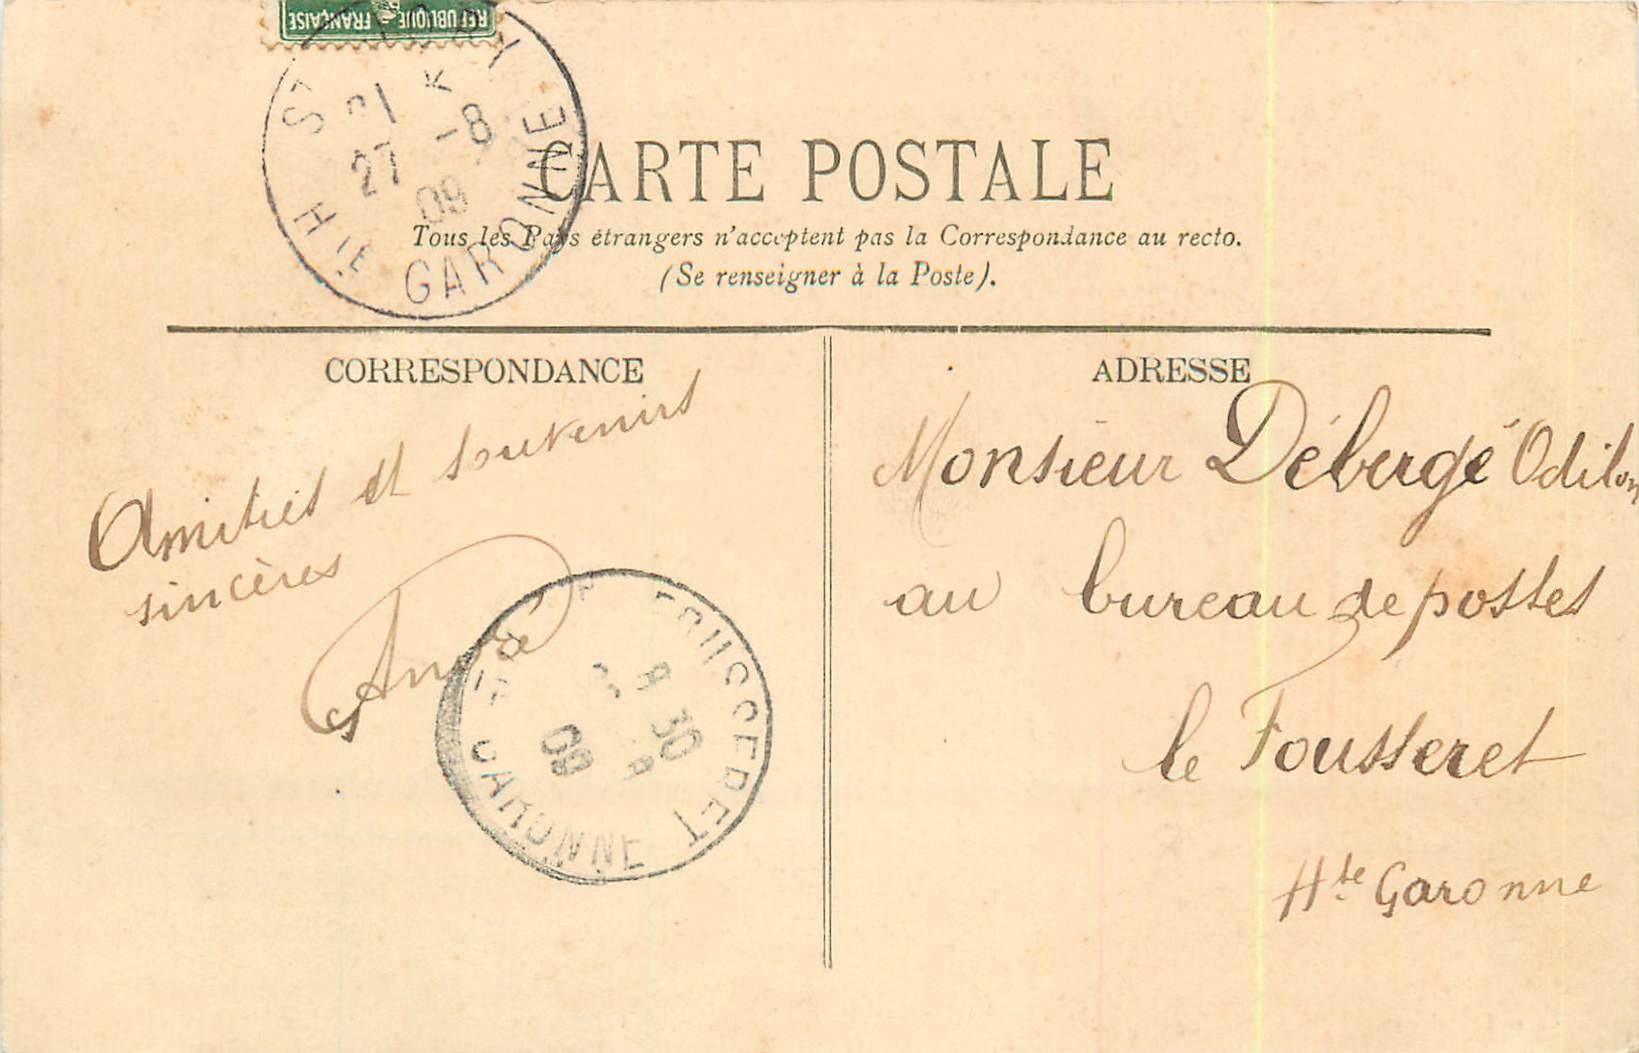 REPUBLIQUE FRANÇAISE
27 -8
09
Hte GARONNE
CARTE POSTALE
Tous les Pays étrangers n'acceptent pas la Correspondance au recto.
(Se renseigner à la Poste).
CORRESPONDANCE
Amitiés et souvenirs
sincères
André
FOUSSERET
8 30
09
GARONNE
ADRESSE
Monsieur Débergé Odilon
au bureau de postes
le Fousseret
Hte Garonne